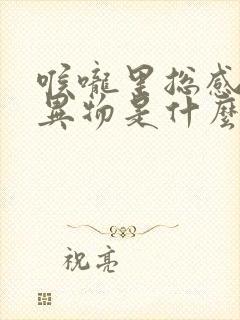 喉嚨里总感
異物是什麼
祝亮